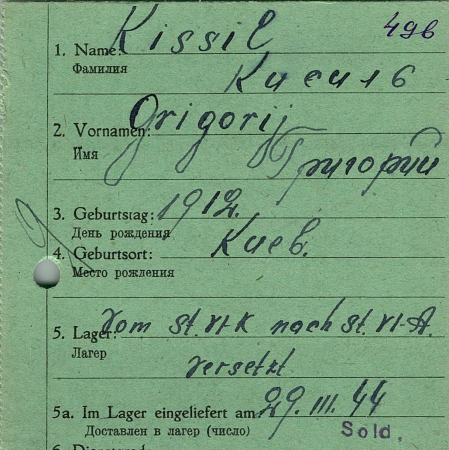 Kissil 496
1. Name:
Фамилия
Кисиль
Grigorij
2. Vornamen:
Имя
Григорий
3. Geburtstag: 1912.
День рождения
4. Geburtsort: Киев.
Место рождения
5. Lager: Vom St. VI-K nach St. VI-A.
Лагер
versetzt
5a. Im Lager eingeliefert am: 29. III. 44
Доставлен в лагер (число)
Sold.